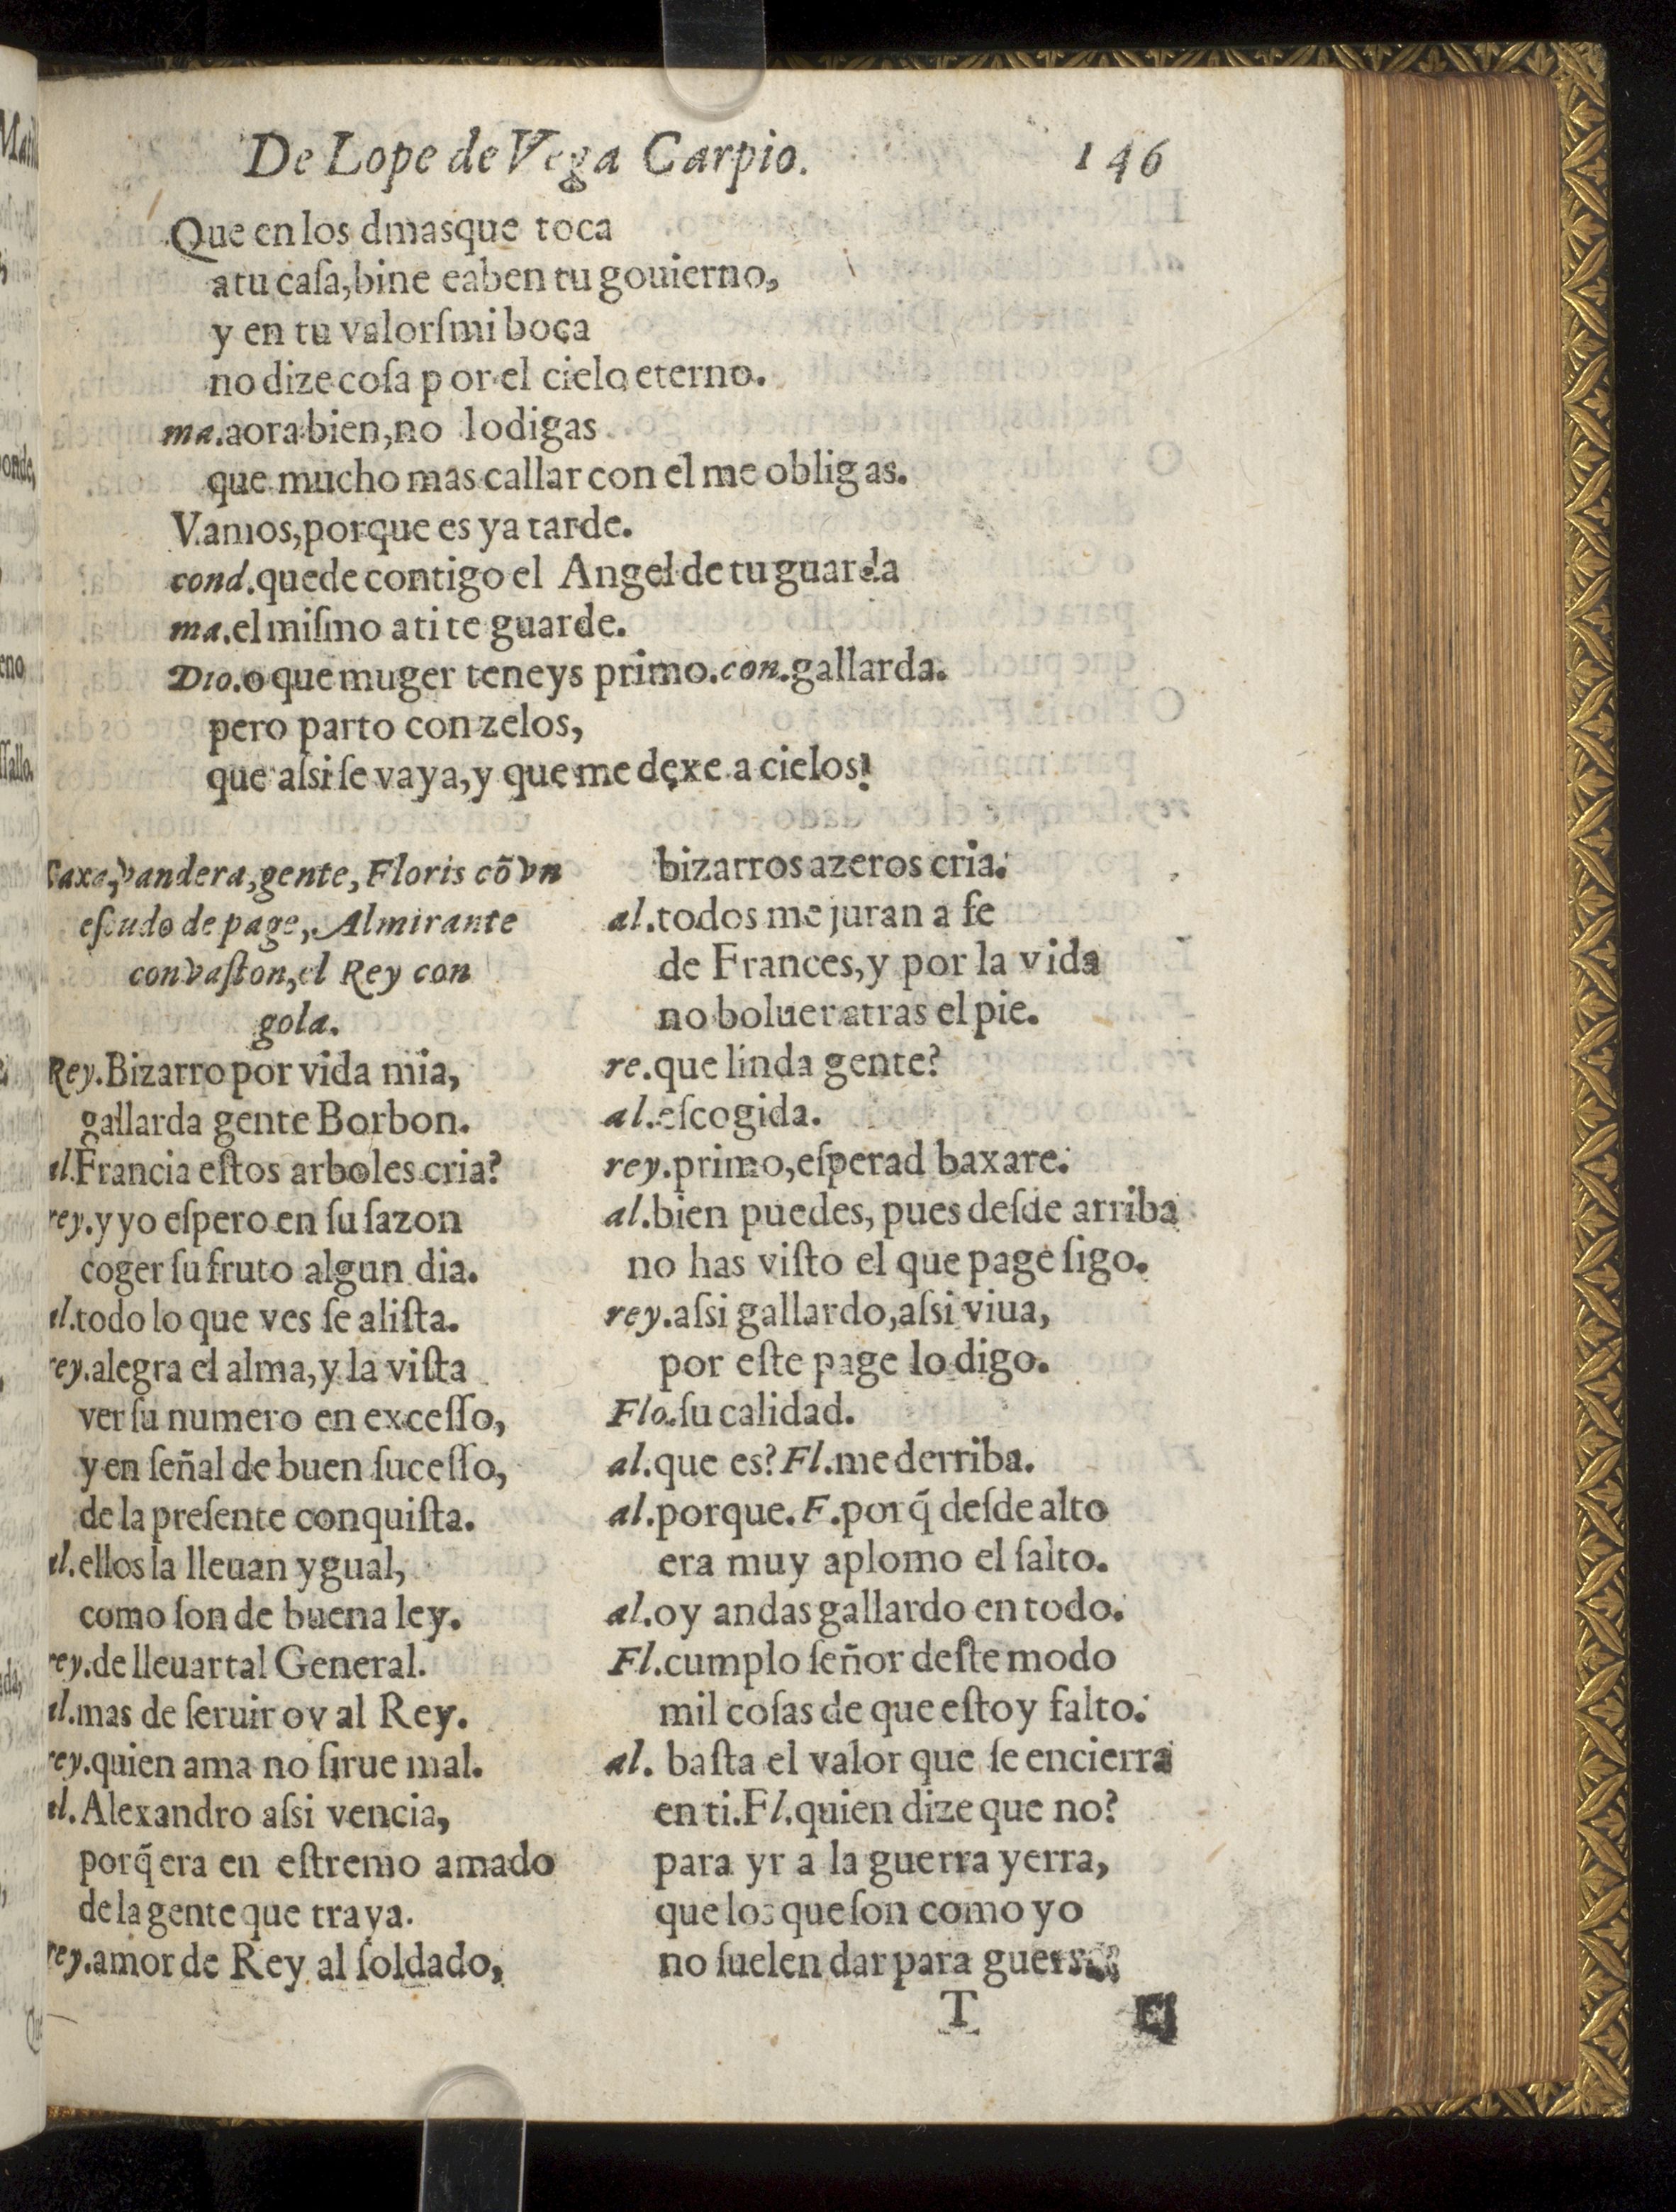 De Lope de Vega Carpio. 146
Que en los dmasque toca
a tu caſa, bine eaben tu gouierno,
y en tu valorſmi boca
no dize coſa por el cielo eterno.
ma. aora bien, no lo digas
que mucho mas callar con el me obligas.
Vamos, porque es ya tarde.
cond. quede contigo el Angel de tu guarda
ma. el miſmo a ti te guarde.
Dio. o que muger teneys primo. con. gallarda.
pero parto con zelos,
que aſsi ſe vaya, y que me dexe a cielos!
Caxa, vandera, gente, Floris cõ vn
eſcudo de page, Almirante
con vaſton, el Rey con
gola.
Rey. Bizarro por vida mia,
gallarda gente Borbon.
al. Francia eſtos arboles cria?
rey. y yo eſpero en ſu ſazon
coger ſu fruto algun dia.
al. todo lo que ves ſe aliſta.
rey. alegra el alma, y la viſta
ver ſu numero en exceſſo,
y en ſeñal de buen ſuceſſo,
de la preſente conquiſta.
al. ellos la lleuan ygual,
como ſon de buena ley.
rey. de lleuar tal General.
al. mas de ſeruir oy al Rey.
rey. quien ama no ſirue mal.
al. Alexandro aſsi vencia,
porq̃ era en eſtremo amado
de la gente que traya.
rey. amor de Rey al ſoldado,
bizarros azeros cria.
al. todos me juran a fe
de Frances, y por la vida
no boluer atras el pie.
re. que linda gente?
al. eſcogida.
rey. primo, eſperad baxare.
al. bien puedes, pues deſde arriba
no has viſto el que page ſigo.
rey. aſsi gallardo, aſsi viua,
por eſte page lo digo.
Flo. ſu calidad.
al. que es? Fl. me derriba.
al. porque. F. porq̃ deſde alto
era muy aplomo el ſalto.
al. oy andas gallardo en todo.
Fl. cumplo ſeñor deſte modo
mil coſas de que eſtoy falto.
al. baſta el valor que ſe encierra
en ti. Fl. quien dize que no?
para yr a la guerra yerra,
que los que ſon como yo
no ſuelen dar para
T